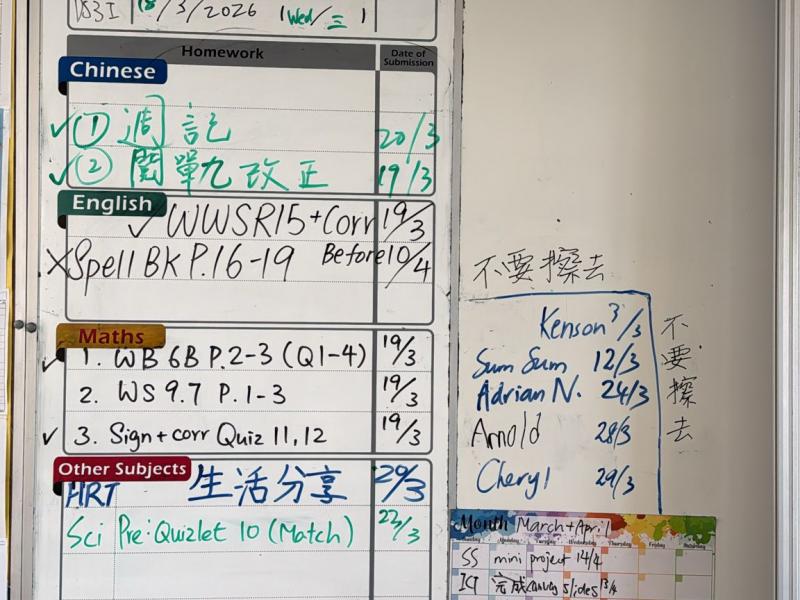 18/3/2026 (Wed/三)
Homework Date of Submission
Chinese
✓① 週記 20/3
✓② 閱單九改正 19/3
English
✓WWSR15+Corr 19/3
XSpell BK P.16-19 Before 10/4
Maths
✓ 1. WB 6B P.2-3 (Q1-4) 19/3
2. WS 9.7 P.1-3 19/3
✓ 3. Sign+corr Quiz 11,12 19/3
Other Subjects
HRT 生活分享 29/3
Sci Pre:Quizlet 10 (Match) 22/3
不要擦去
Kenson 3/3
Sum Sum 12/3
Adrian N. 24/3
Arnold 28/3
Cheryl 29/3
不要擦去
Month March+April
SS mini project 14/4
ICT 完成canva slides